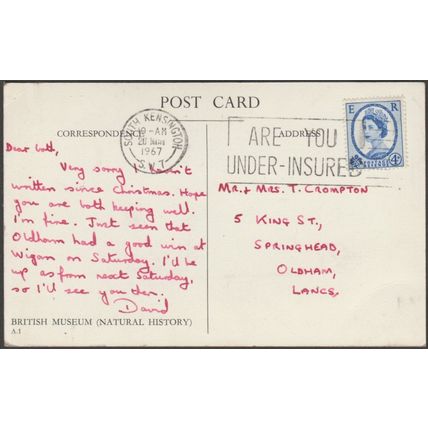 POST CARD
CORRESPONDENCE
ADDRESS
SOUTH KENSINGTON
-AM
20
1967
S.W.7
ARE YOU
UNDER-INSURED
E R
Dear both,
Very sorry I
written since Christmas. Hope
you are both keeping well.
I'm fine. Just seen that
Oldham had a good win at
Wigan on Saturday. I'll be
up as from next Saturday,
so I'll see you then.
David
Mr. + Mrs. T. Crompton
5 King St.,
Springhead,
Oldham,
Lancs.
BRITISH MUSEUM (NATURAL HISTORY)
A.1